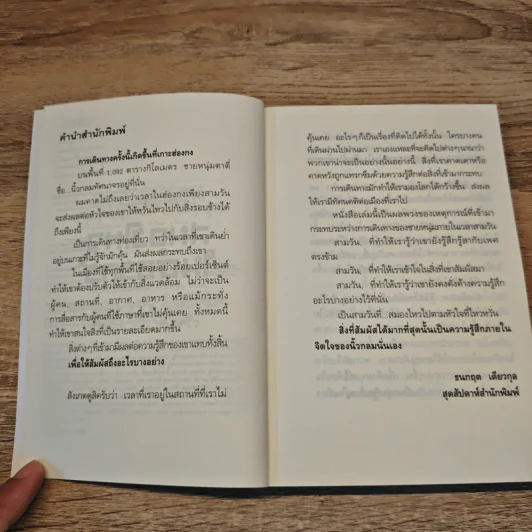 คำนำสำนักพิมพ์
การเดินทางครั้งนี้เกิดขึ้นที่เกาะฮ่องกง
บนพื้นที่ 1,092 ตารางกิโลเมตร ชายหนุ่มตาตี่
ชื่อ นิ้วกลมทัศนาจรอยู่ที่นั่น
ผมคาดไม่ถึงเลยว่าเวลาในฮ่องกงเพียงสามวัน
จะส่งผลต่อหัวใจของเขาให้หวั่นไหวไปกับสิ่งรอบข้างได้
ถึงเพียงนี้
เป็นการเดินทางท่องเที่ยว ทว่าในเวลาที่เขาเดินย่ำ
อยู่บนเกาะที่ไม่รู้จักมักคุ้น มันส่งผลกระทบถึงเขา
ในเมืองที่ใช้ทุกพื้นที่ใช้สอยอย่างร้อยเปอร์เซ็นต์
ทำให้เขาต้องปรับตัวให้เข้ากับสิ่งแวดล้อม ไม่ว่าจะเป็น
ผู้คน, สถานที่, อากาศ, อาหาร หรือแม้กระทั่ง
การสื่อสารกับผู้คนที่ใช้ภาษาที่เขาไม่คุ้นเคย ทั้งหมดนี้
ทำให้เขาสนใจสิ่งที่เป็นรายละเอียดมากขึ้น
สิ่งต่างๆที่เข้ามามีผลต่อความรู้สึกของเขาแทบทั้งสิ้น
เพื่อให้สัมผัสถึงอะไรบางอย่าง
สังเกตดูสิครับว่า เวลาที่เราอยู่ในสถานที่ที่เราไม่
คุ้นเคย อะไรๆ ก็เป็นเรื่องที่คิดไปได้ทั้งนั้น ใครบางคน
ที่เดินผ่านไปผ่านมา เราเองแหละที่จะคิดไปต่างๆนานาว่า
พวกเขาน่าจะเป็นอย่างนั้นอย่างนี้ สิ่งที่เราคาดเดาหรือ
คาดหวังถูกแทรกซึมด้วยความรู้สึกต่อสิ่งที่เข้ามากระทบ
การเดินทางมักทำให้เรามองโลกได้กว้างขึ้น ส่งผล
ให้เรามีทัศนคติต่อเมืองที่เราไป
หนังสือเล่มนี้เป็นผลพวงของเหตุการณ์ที่เข้ามา
กระทบระหว่างการเดินทางของชายหนุ่มภายในเวลาสามวัน
สามวัน, ที่ทำให้เรารู้ว่าเขายังรู้สึกรู้สากับเพศ
ตรงข้าม
สามวัน, ที่ทำให้เราเข้าใจในสิ่งที่เขาสัมผัสมา
สามวัน, ที่ทำให้เรารู้ว่าเขายังคงดั่งค้างความรู้สึก
อะไรบางอย่างไว้ที่นั่น
เป็นสามวันที่...สมองไหวไปตามหัวใจที่ไหวหวั่น
สิ่งที่สัมผัสได้มากที่สุดนั้นเป็นความรู้สึกภายใน
จิตใจของนิ้วกลมนั่นเอง
ธนกฤต เดียวกุล
สุดสัปดาห์สำนักพิมพ์